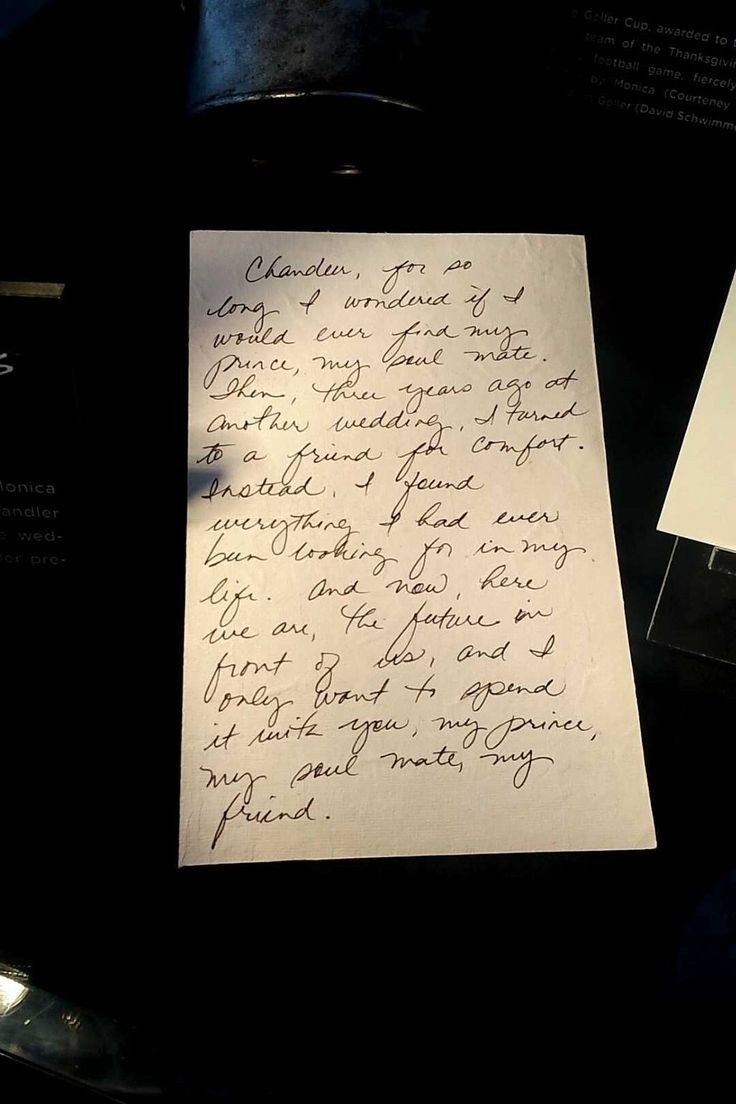 Geller Cup, awarded to t
team of the Thanksgivin
football game, fiercely
by Monica (Courteney
Geller (David Schwimm
Chandler, for so
long I wondered if I
would ever find my
prince, my soul mate.
Then, three years ago at
another wedding, I turned
to a friend for comfort.
Instead, I found
everything I had ever
been looking for in my
life. And now, here
we are, the future in
front of us, and I
only want to spend
it with you, my prince,
my soul mate, my
friend.
S
Monica
handler
e wed-
or pre-